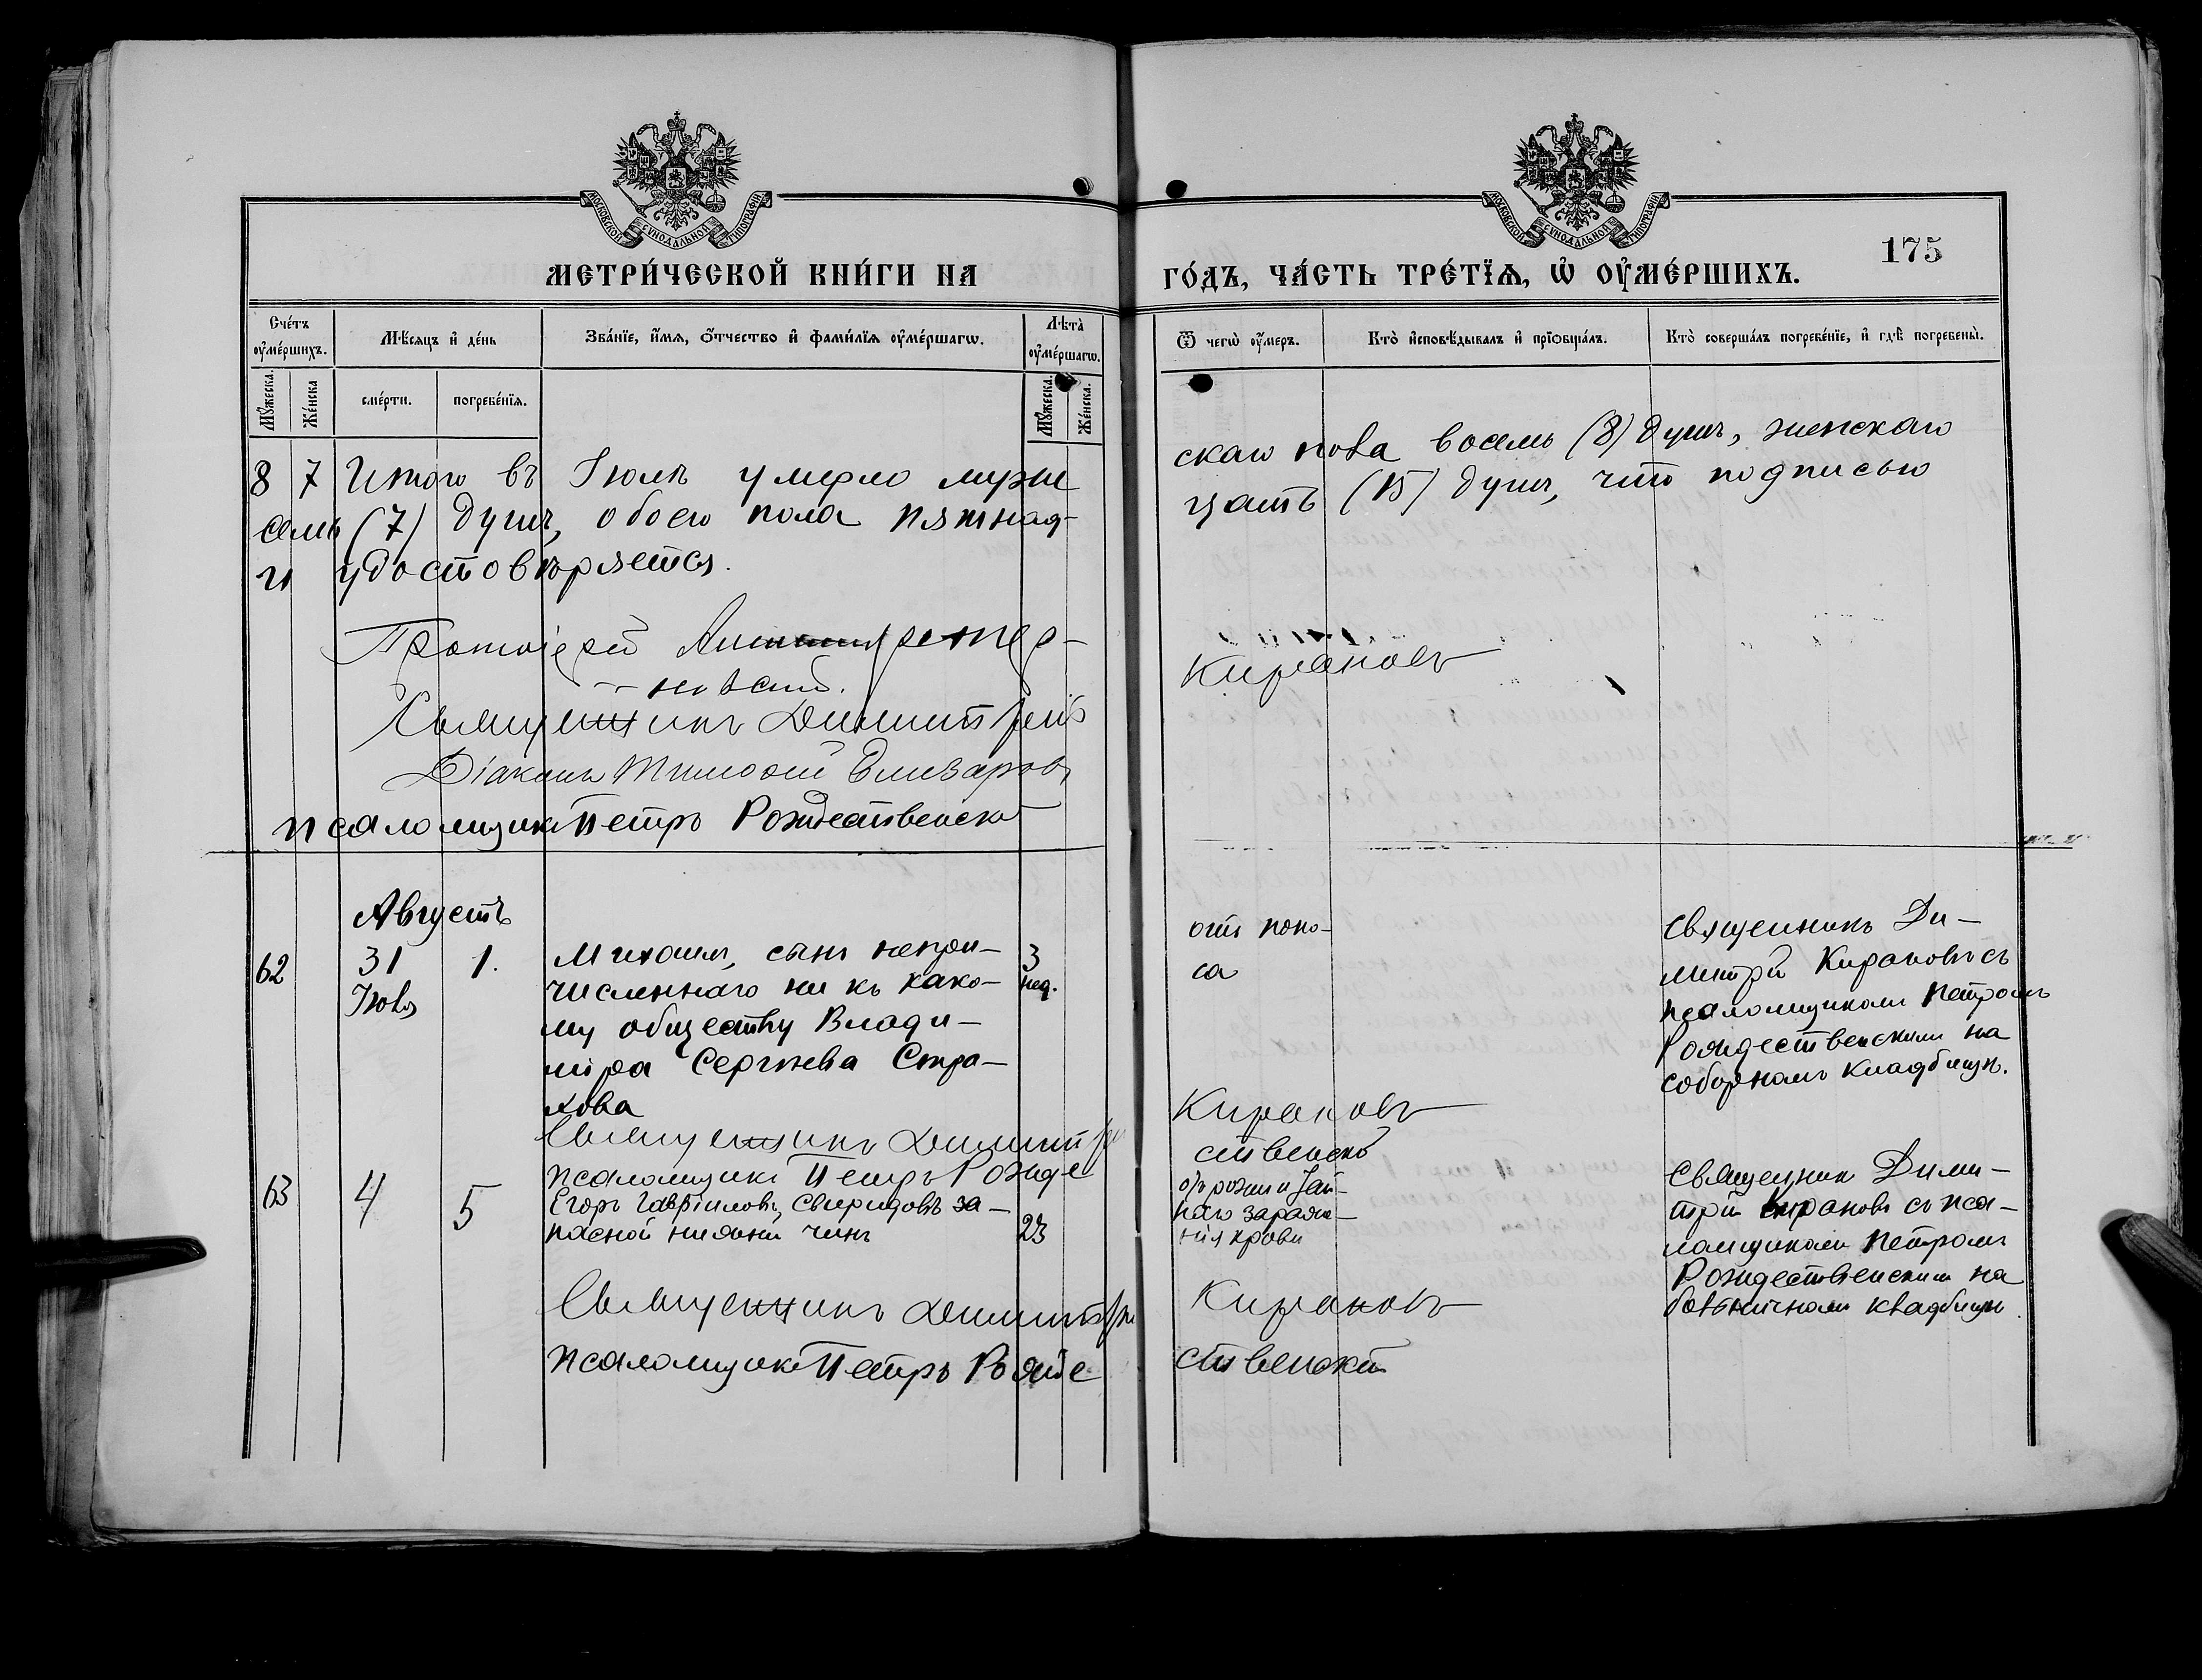 МОСКОВСКОЙ СѴНОДАЛЬНОЙ ТИПОГРАФІИ
МОСКОВСКОЙ СѴНОДАЛЬНОЙ ТИПОГРАФІИ
МЕТРИ́ЧЕСКОЙ КНИ́ГИ НА
ГО́ДЪ, ЧА́СТЬ ТРЕ́ТЇѦ, Ѡ҆ ОУ҆МЕ́РШИХЪ.
175
Сче́тъ оу҆ме́ршихъ.
Мѣ́сяцъ и҆ де́нь
Зва́нїе, и҆́мѧ, ѻ҆́тчество и҆ фами́лїѧ оу҆ме́ршагѡ.
Лѣ́та оу҆ме́ршагѡ.
Ѿ чегѡ̀ оу҆́меръ.
Кто̀ и҆сповѣ́дывалъ и҆ прїѻбща́лъ.
Кто̀ соверша́лъ погребе́нїе, и҆ гдѣ̀ погребены̀.
Мꙋ́жеска.
Же́нска
сме́рти.
погребе́нїѧ.
Мꙋ́жеска.
Же́нска.
8 7 Итого въ Іюлѣ умерло муже
скаго пола восемь (8) душъ, женскаго
семь (7) душъ, обоего пола пятнад-
цать (15) душъ, что подписью
и удостовѣряется.
Протоіерей
Священникъ Димитрій
Кирановъ
Діаконъ Тимофей Елизаровъ
псаломщикъ Петръ Рождественскій
Августъ
62 31 Іюля 1.
Михаилъ, сынъ непри-
численнаго ни къ како-
му обществу Влади-
міра Сергѣева Стра-
хова
3 нед.
отъ поно-
са
Священникъ Ди-
митрій Кирановъ съ
псаломщикомъ Петромъ
Рождественскимъ на
соборномъ кладбищѣ.
Священникъ Димитрій
Кирановъ
псаломщикъ Петръ Рожде
ственскій
63 4 5
Егоръ Гавріиловъ Свиридовъ за-
пасной нижній чинъ
23
отъ рожи и
наго зараже-
нія крови
Священникъ Дими-
трій Кирановъ съ пса-
ломщикомъ Петромъ
Рождественскимъ на
больничномъ кладбищѣ.
Священникъ Димитрій
Кирановъ
псаломщикъ Петръ Рожде
ственскій